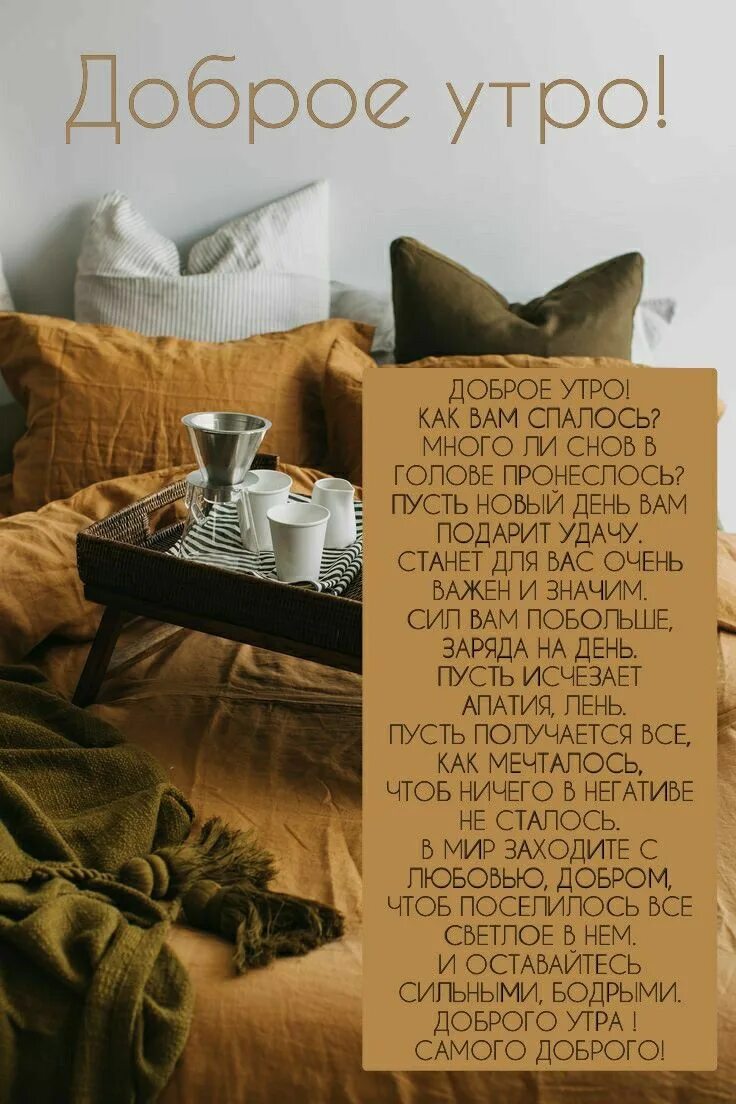 Доброе утро!
ДОБРОЕ УТРО!
КАК ВАМ СПАЛОСЬ?
МНОГО ЛИ СНОВ В
ГОЛОВЕ ПРОНЕСЛОСЬ?
ПУСТЬ НОВЫЙ ДЕНЬ ВАМ
ПОДАРИТ УДАЧУ.
СТАНЕТ ДЛЯ ВАС ОЧЕНЬ
ВАЖЕН И ЗНАЧИМ.
СИЛ ВАМ ПОБОЛЬШЕ,
ЗАРЯДА НА ДЕНЬ.
ПУСТЬ ИСЧЕЗАЕТ
АПАТИЯ, ЛЕНЬ.
ПУСТЬ ПОЛУЧАЕТСЯ ВСЕ,
КАК МЕЧТАЛОСЬ,
ЧТОБ НИЧЕГО В НЕГАТИВЕ
НЕ СТАЛОСЬ.
В МИР ЗАХОДИТЕ С
ЛЮБОВЬЮ, ДОБРОМ,
ЧТОБ ПОСЕЛИЛОСЬ ВСЕ
СВЕТЛОЕ В НЕМ.
И ОСТАВАЙТЕСЬ
СИЛЬНЫМИ, БОДРЫМИ.
ДОБРОГО УТРА !
САМОГО ДОБРОГО!